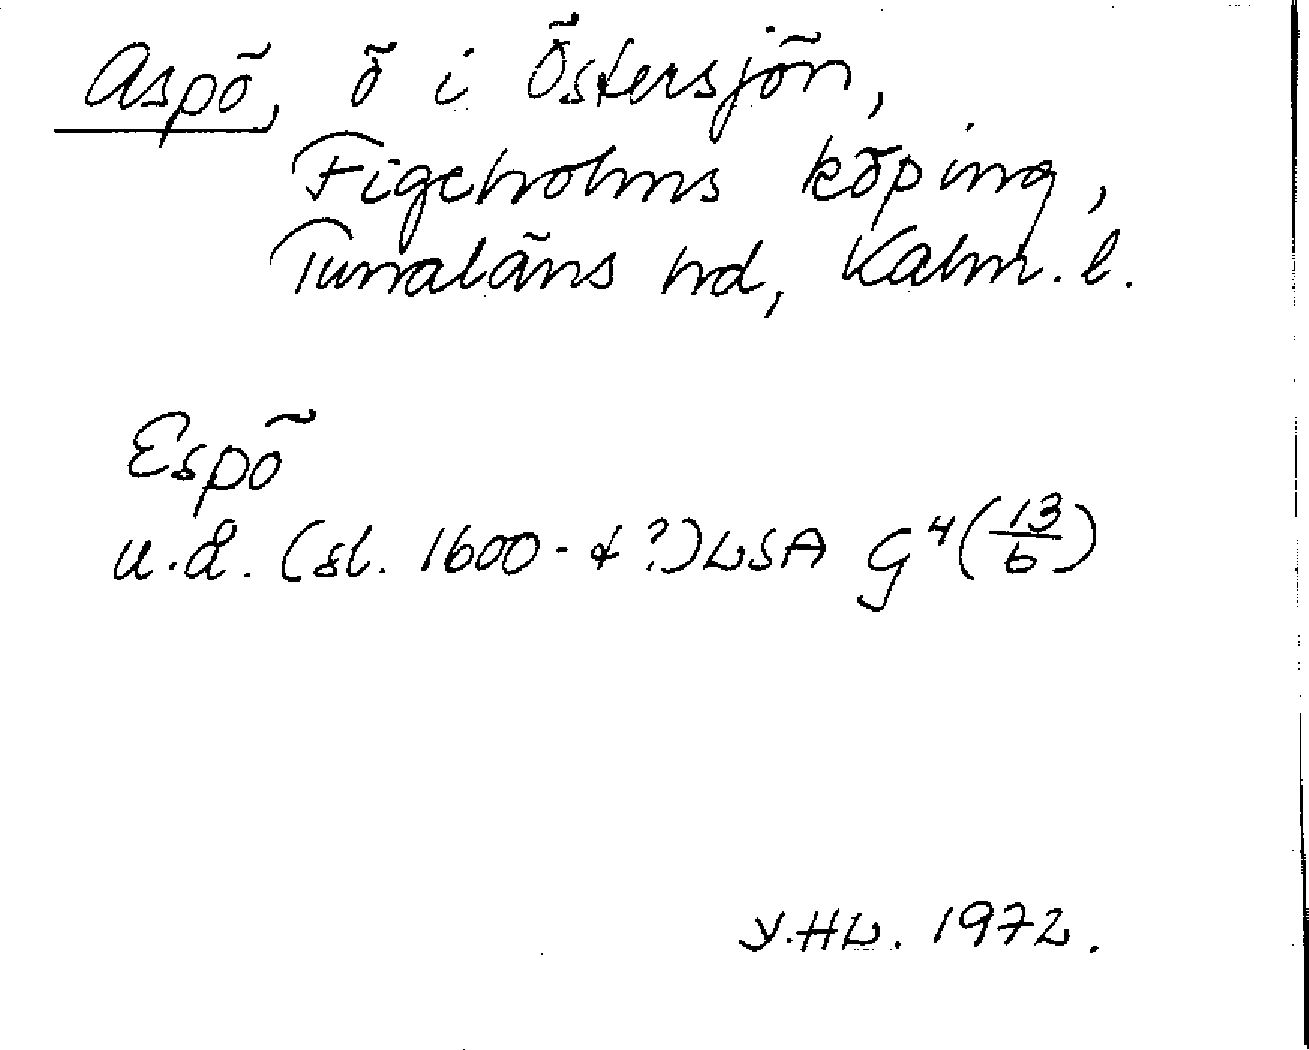 Aspö, ö i Östersjön,
Figeholms köping,
Tunaläns hd, Kalm. l.
Espö
u.d. (sl. 1600-t?) LSA G⁴ (13/6)
Y.HL. 1972.